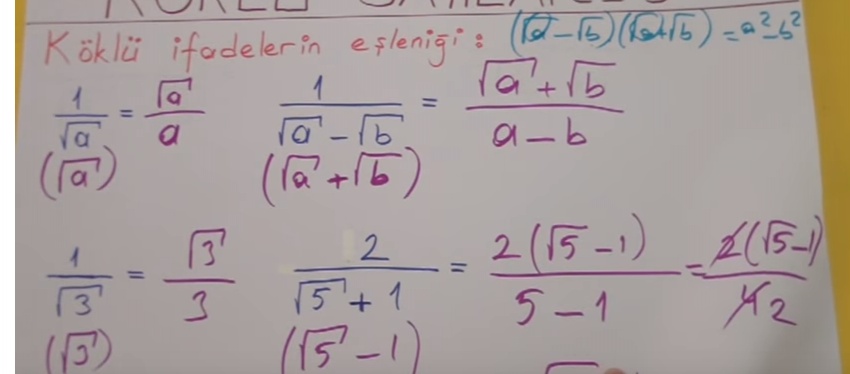 Köklü ifadelerin eşleniği: (√a - √b)(√a+√b) = a² - b²
1/√a = √a/a    1/(√a - √b) = (√a + √b)/(a - b)
(√a)    (√a + √b)
1/√3 = √3/3    2/(√5 + 1) = 2(√5 - 1)/(5 - 1) = 2(√5 - 1)/4 2
(√3)    (√5 - 1)